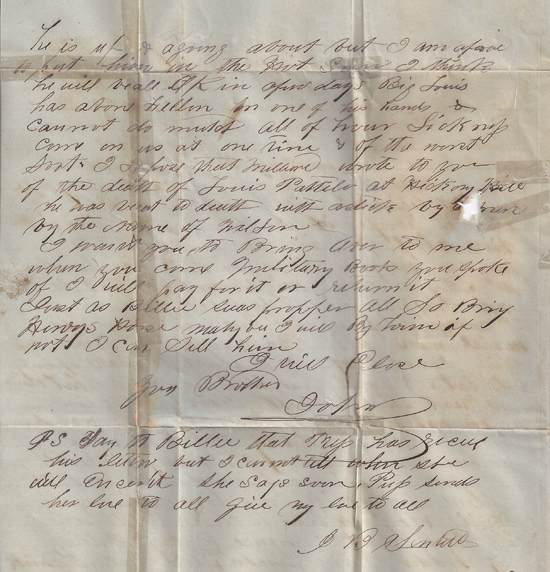 he is up & agoing about but I am afrade
to put him in the I think
he will be all in a few days Big Louis
has a bone fellon on one of his hands &
cannot do mutch all of hour Sickness
come on us at one time & of the worst
Sort I supose that William wrote to you
of the death of Louis at Hickory
he was beat to death with a by a man
by the name of Wilson
I want you to Bring over to me
when you come Military Book you spoke
of I will pay for it or return it
Just as Billie propper all So Bring
Horse I will By him if
not I can Sell him
I will Close
Your Brother
John
PS Say to Billie that has
his letter but I cannot tell when she
will she says soon sends
her love to all give my love to all
J B